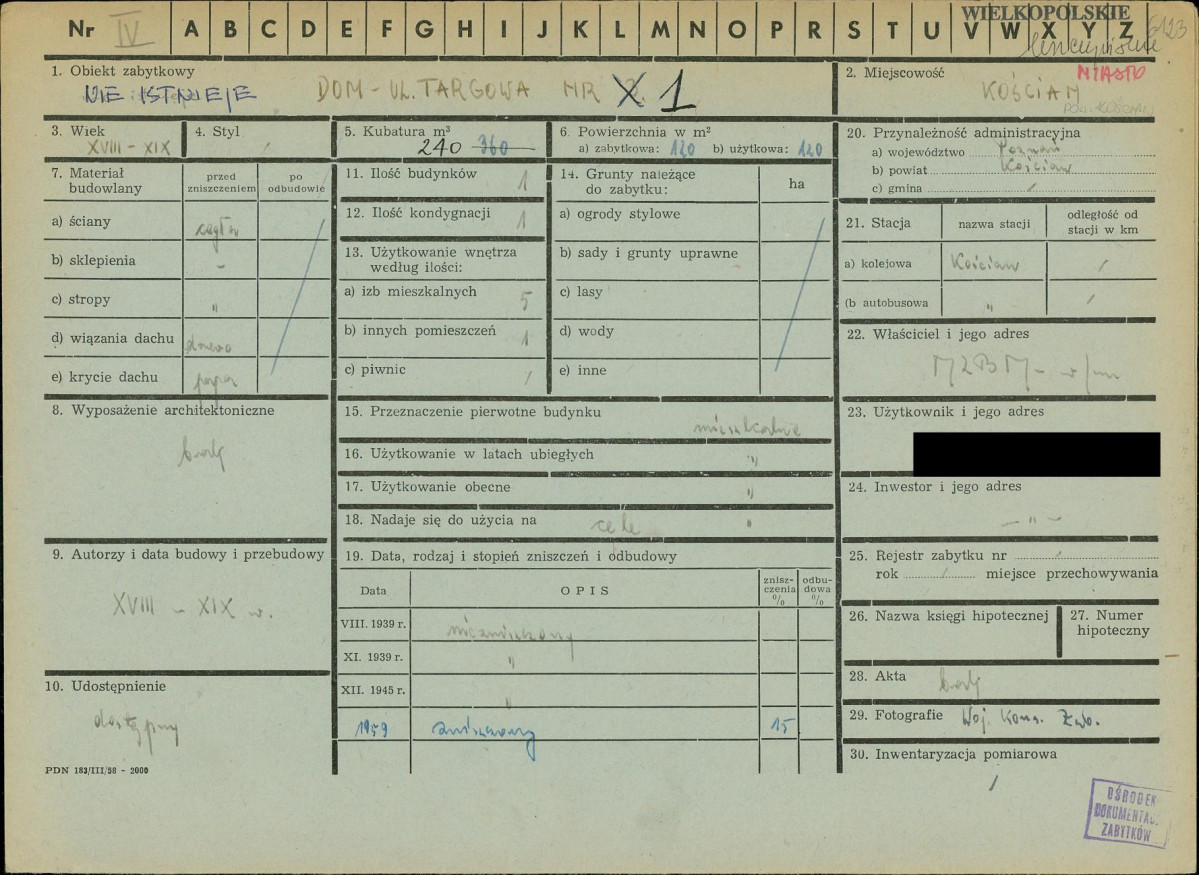 Nr IV A B C D E F G H I J K L M N O P R S T U V W X Y Z
WIELKOPOLSKIE
1. Obiekt zabytkowy
NIE ISTNIEJE
DOM - UL. TARGOWA NR 1
2. Miejscowość
MIASTO
KOŚCIAN
POW. KOŚCIAN
3. Wiek
XVIII - XIX
4. Styl
/
5. Kubatura m³
240 360
6. Powierzchnia w m²
a) zabytkowa: 120 b) użytkowa: 120
20. Przynależność administracyjna
a) województwo Poznań
b) powiat Kościan
c) gmina /
7. Materiał budowlany
przed zniszczeniem
po odbudowie
a) ściany cegła
b) sklepienia -
c) stropy "
d) wiązania dachu drewno
e) krycie dachu papa
11. Ilość budynków 1
12. Ilość kondygnacji 1
13. Użytkowanie wnętrza według ilości:
a) izb mieszkalnych 5
b) innych pomieszczeń 1
c) piwnic /
14. Grunty należące do zabytku:
ha
a) ogrody stylowe
b) sady i grunty uprawne
c) lasy
d) wody
e) inne
21. Stacja
nazwa stacji
odległość od stacji w km
a) kolejowa Kościan /
(b autobusowa " /
22. Właściciel i jego adres
MZBM - w/m
23. Użytkownik i jego adres
24. Inwestor i jego adres
- " -
8. Wyposażenie architektoniczne
brak
15. Przeznaczenie pierwotne budynku
mieszkalne
16. Użytkowanie w latach ubiegłych "
17. Użytkowanie obecne "
18. Nadaje się do użycia na cele "
9. Autorzy i data budowy i przebudowy
XVIII - XIX w.
19. Data, rodzaj i stopień zniszczeń i odbudowy
Data
OPIS
znisz-
czenia
%
odbu-
dowa
%
VIII. 1939 r. niezniszczony
XI. 1939 r. "
XII. 1945 r. "
1959 zniszczony 15
25. Rejestr zabytku nr /
rok / miejsce przechowywania
26. Nazwa księgi hipotecznej
27. Numer hipoteczny
28. Akta brak
29. Fotografie Woj. Kons. Zab.
30. Inwentaryzacja pomiarowa
/
10. Udostępnienie
dostępny
PDN 183/III/58 - 2000
OŚRODEK
DOKUMENTAC.
ZABYTKÓW